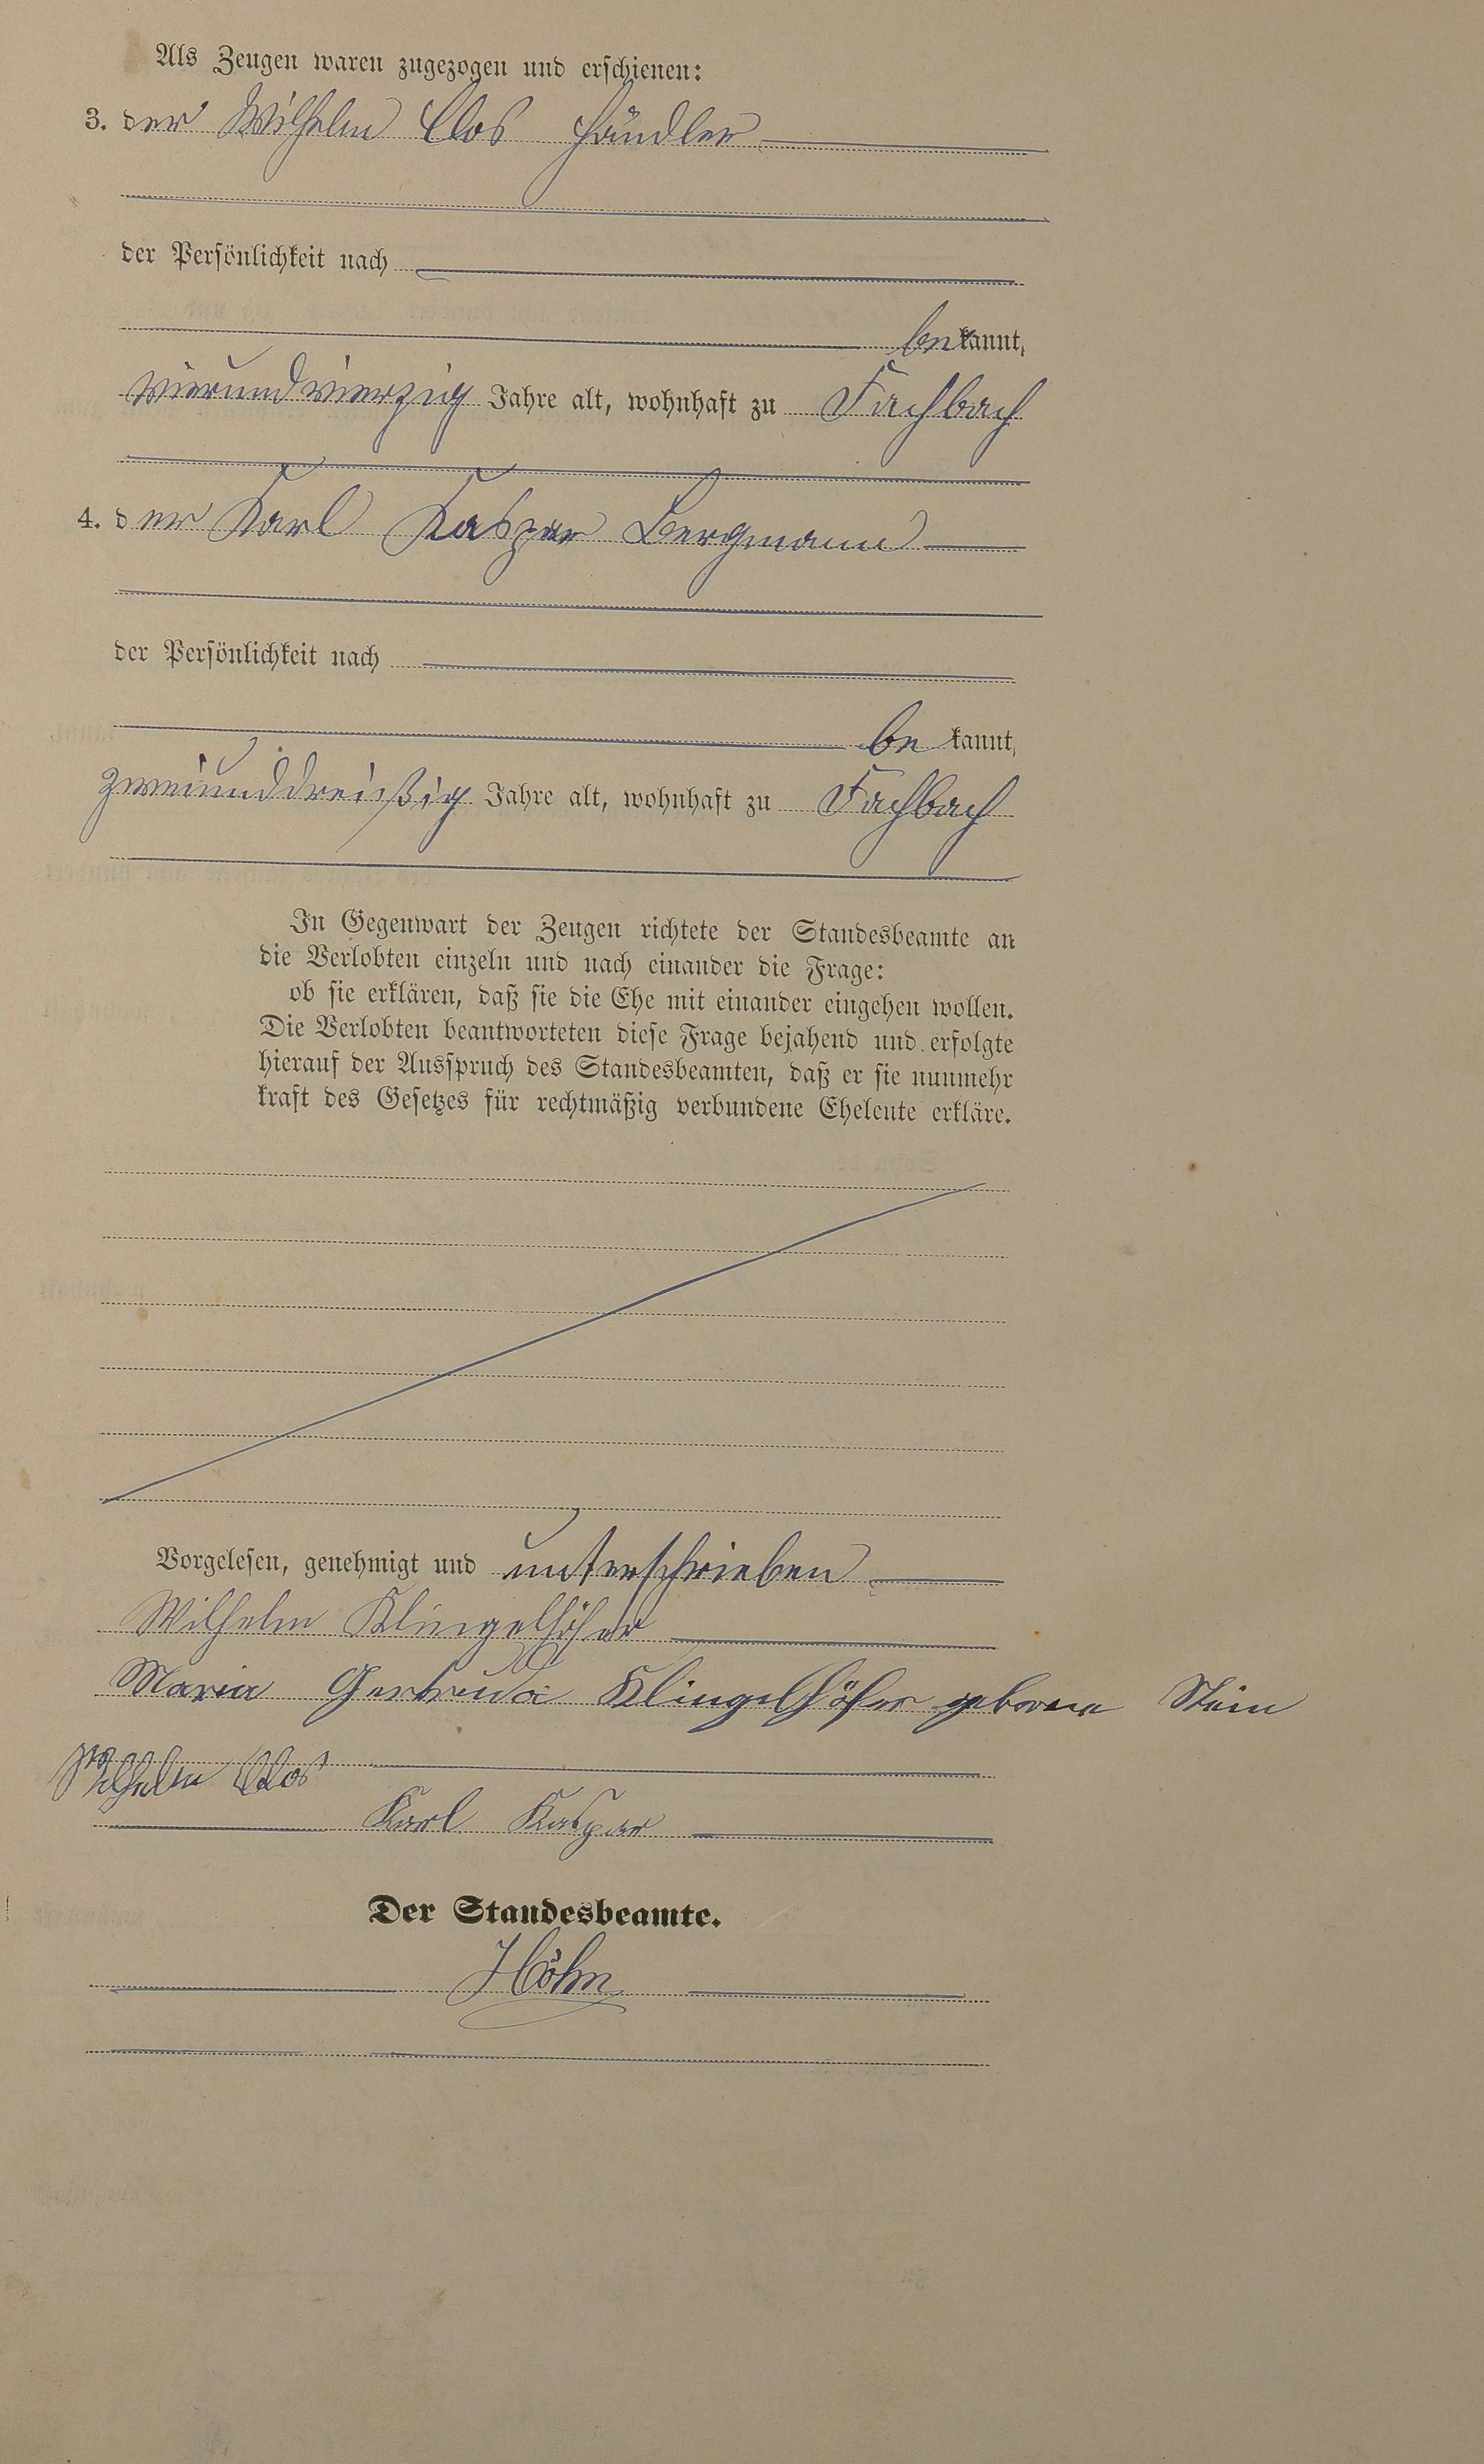 Als Zeugen waren zugezogen und erschienen:
3. der Wilhelm Clos Händler
der Persönlichkeit nach
bekannt,
vierundvierzig Jahre alt, wohnhaft zu Fachbach
4. der Karl Kaspar Bergmann
der Persönlichkeit nach
be kannt,
zweiunddreißig Jahre alt, wohnhaft zu Fachbach
In Gegenwart der Zeugen richtete der Standesbeamte an
die Verlobten einzeln und nach einander die Frage:
ob sie erklären, daß sie die Ehe mit einander eingehen wollen.
Die Verlobten beantworteten diese Frage bejahend und erfolgte
hierauf der Ausspruch des Standesbeamten, daß er sie nunmehr
kraft des Gesetzes für rechtmäßig verbundene Eheleute erkläre.
Vorgelesen, genehmigt und unterschrieben
Wilhelm Klingelhöfer
Maria Gertruda Klingelhöfer geborene Stein
Wilhelm Clos
Karl Kaspar
Der Standesbeamte.
Höhn